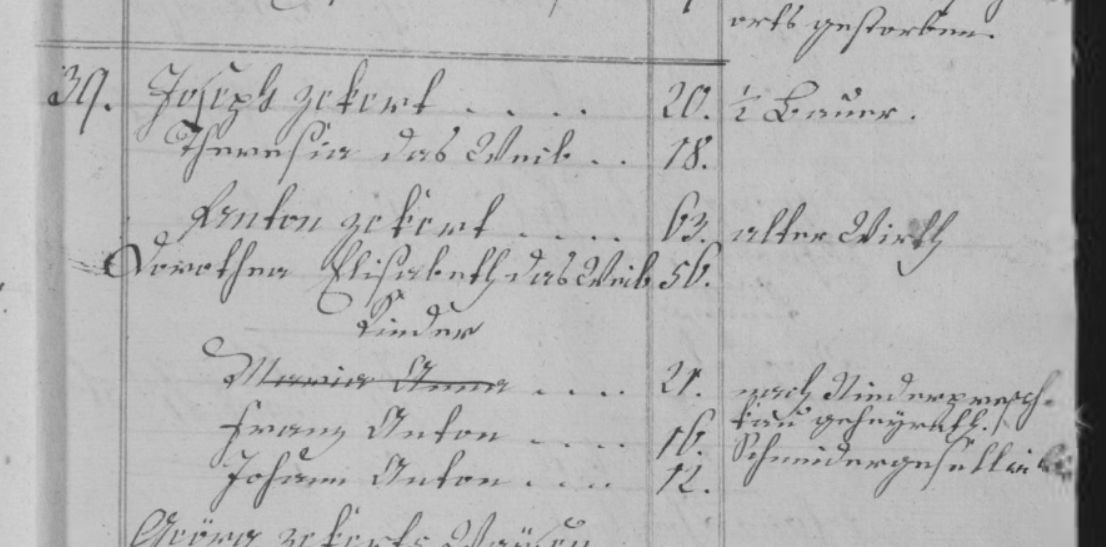 orts gestorben.
39. Joseph Zekert . . . . 20. ½ Bauer.
Theresia das Weib . . 18.
Anton Zekert . . . . 63. alter Wirth
Dorothea Elisabeth das Weib 56.
Kinder
Maria Anna . . . . 21. nach Niederpresch-
kau geheyrath.
Franz Anton . . . . 16. Schneidergesell in
Johann Anton . . . . 12.
Georg Zekerts Waisen